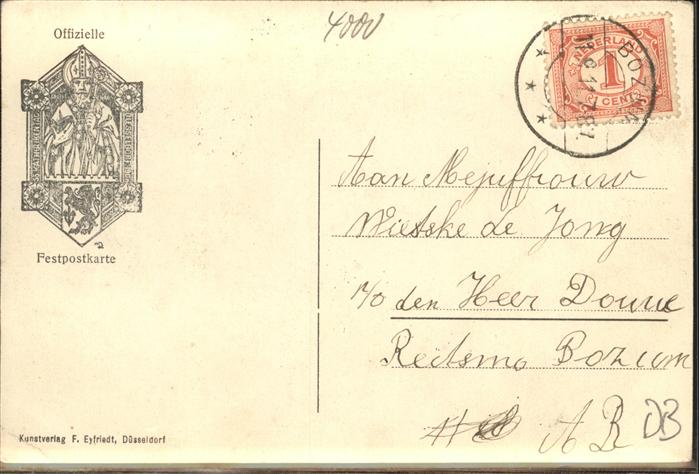 Offizielle
Festpostkarte
Kunstverlag F. Eyfriedt, Düsseldorf
4000
NEDERLAND
1
CENT
BOZUM
Aan Mejuffrouw
Wietske de Jong
p/o den Heer Douwe
Reitsma Bozum
A B
DB